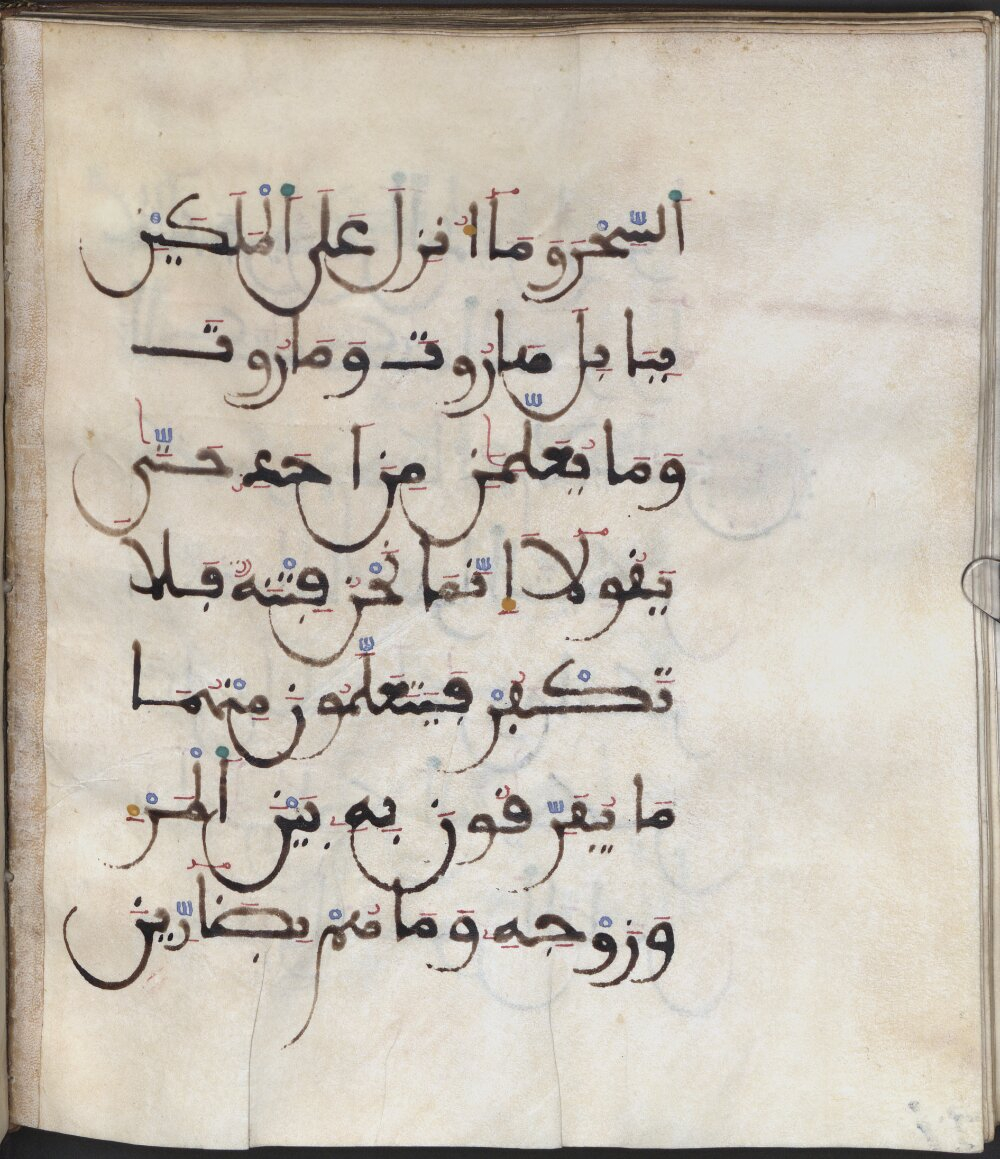 اَلسِّحْرَ وَمَآ أُنزِلَ عَلَى اَلْمَلَكَيْنِ
بِبَابِلَ هَارُوتَ وَمَارُوتَ
وَمَا يُعَلِّمَٰنِ مِنَ اَحَدٍ حَتَّىٰ
يَقُولَآ إِنَّمَا نَحْنُ فِتْنَةٌ فَلَا
تَكْفُرْ فَيَتَعَلَّمُونَ مِنْهُمَا
مَا يُفَرِّقُونَ بِهِ بَيْنَ اَلْمَرْءِ
وَزَوْجِهِ وَمَا هُمْ بِضَآرِّينَ